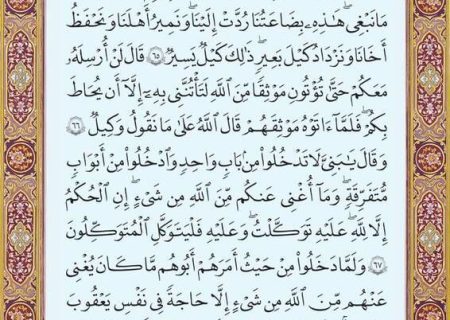 مَا نَبْغِي ۖ هَٰذِهِۦ بِضَٰعَتُنَا رُدَّتْ إِلَيْنَا ۖ وَنَمِيرُ أَهْلَنَا وَنَحْفَظُ
أَخَانَا وَنَزْدَادُ كَيْلَ بَعِيرٍ ۖ ذَٰلِكَ كَيْلٌ يَسِيرٌ ﴿٦٥﴾ قَالَ لَنْ أُرْسِلَهُۥ
مَعَكُمْ حَتَّىٰ تُؤْتُونِ مَوْثِقًا مِّنَ ٱللَّهِ لَتَأْتُنَّنِي بِهِۦٓ إِلَّآ أَن يُحَاطَ
بِكُمْ ۖ فَلَمَّآ ءَاتَوْهُ مَوْثِقَهُمْ قَالَ ٱللَّهُ عَلَىٰ مَا نَقُولُ وَكِيلٌ ﴿٦٦﴾
وَقَالَ يَٰبَنِيَّ لَا تَدْخُلُوا۟ مِنۢ بَابٍ وَٰحِدٍ وَٱدْخُلُوا۟ مِنْ أَبْوَٰبٍ
مُّتَفَرِّقَةٍ ۖ وَمَآ أُغْنِي عَنكُم مِّنَ ٱللَّهِ مِن شَيْءٍ ۖ إِنِ ٱلْحُكْمُ
إِلَّا لِلَّهِ ۖ عَلَيْهِ تَوَكَّلْتُ ۖ وَعَلَيْهِ فَلْيَتَوَكَّلِ ٱلْمُتَوَكِّلُونَ
﴿٦٧﴾ وَلَمَّا دَخَلُوا۟ مِنْ حَيْثُ أَمَرَهُمْ أَبُوهُم مَّا كَانَ يُغْنِي
عَنْهُم مِّنَ ٱللَّهِ مِن شَيْءٍ إِلَّا حَاجَةً فِي نَفْسِ يَعْقُوبَ